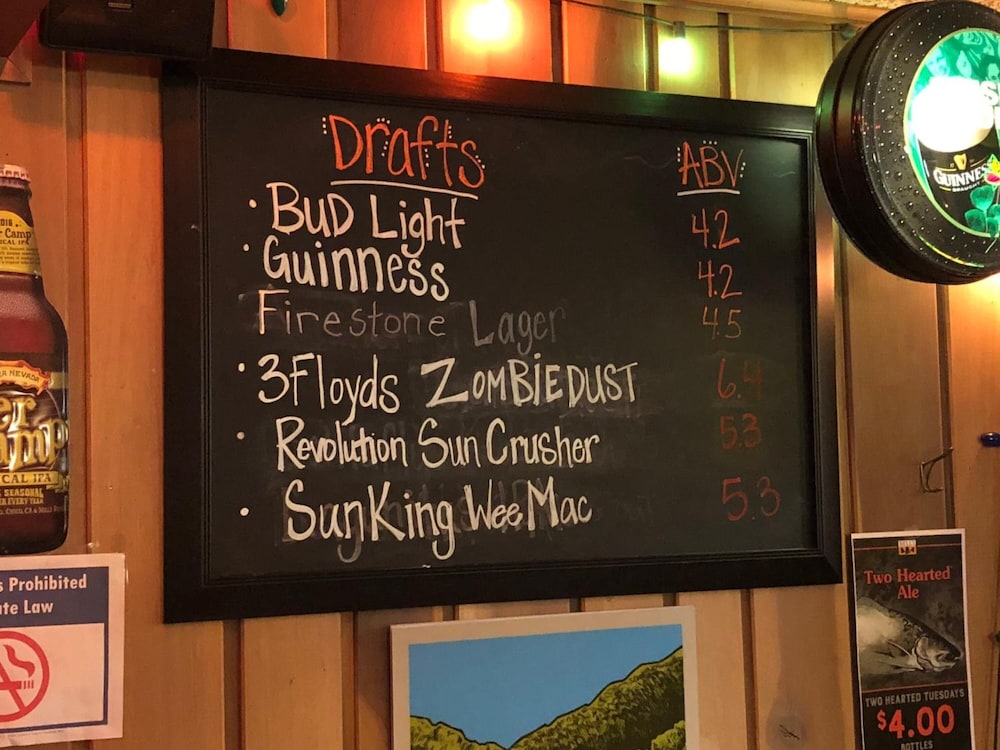 Drafts ABV
Bud Light 4.2
Guinness 4.2
Firestone Lager 4.5
3Floyds ZOMBIEDUST 6.4
Revolution Sun Crusher 5.3
SunKing Wee Mac 5.3
GUINNESS
DRAUGHT
Camp
ICAL IPA
NEVADA
ICAL IPA
SEASONAL
Prohibited
te Law
Two Hearted
Ale
TWO HEARTED TUESDAYS
$4.00
BOTTLES